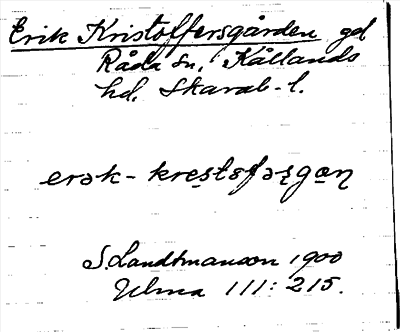 Erik Kristoffersgården gd
Råda sn, Kållands
hd, Skarab-l.
erək-krestɵfərgαn̥
S. Landtmanson 1900
Ulma 111:215.